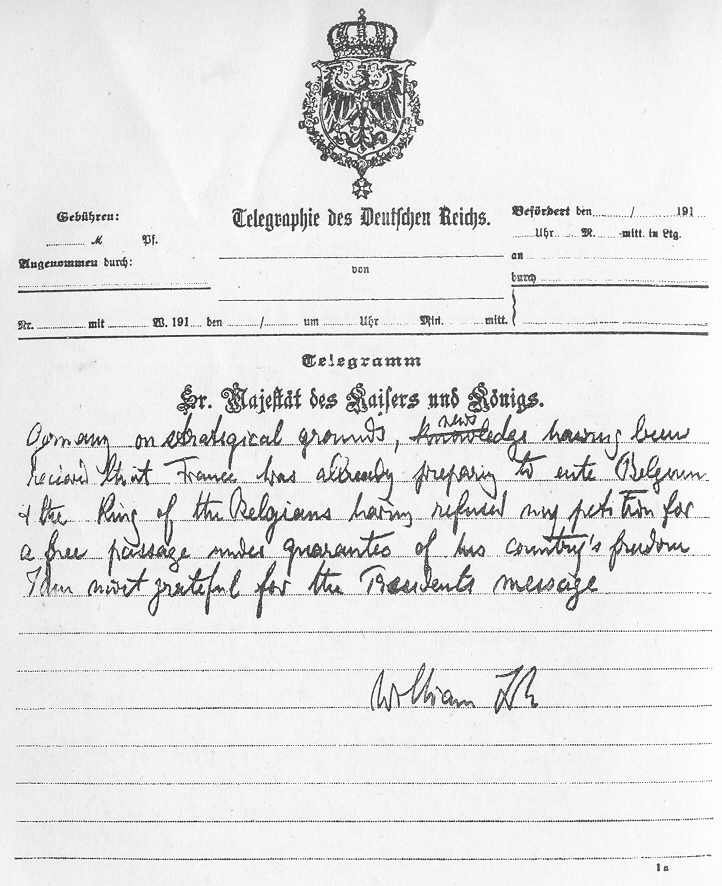 Gebühren:
M Pf.
Angenommen durch:
Telegraphie des Deutschen Reichs.
von
Befördert den / 191
Uhr M. mitt. in Ltg.
an
durch
Nr. mit W. 191 den / um Uhr Min. mitt.
Telegramm
Sr. Majestät des Kaisers und Königs.
news
Germany on strategical grounds, knowledge having been
recieved that France was allready preparing to ente Belgium
& the King of the Belgians having refused my petition for
a free passage under guarantee of his country's freedom
I am most grateful for the Presidents message
William IR
1a